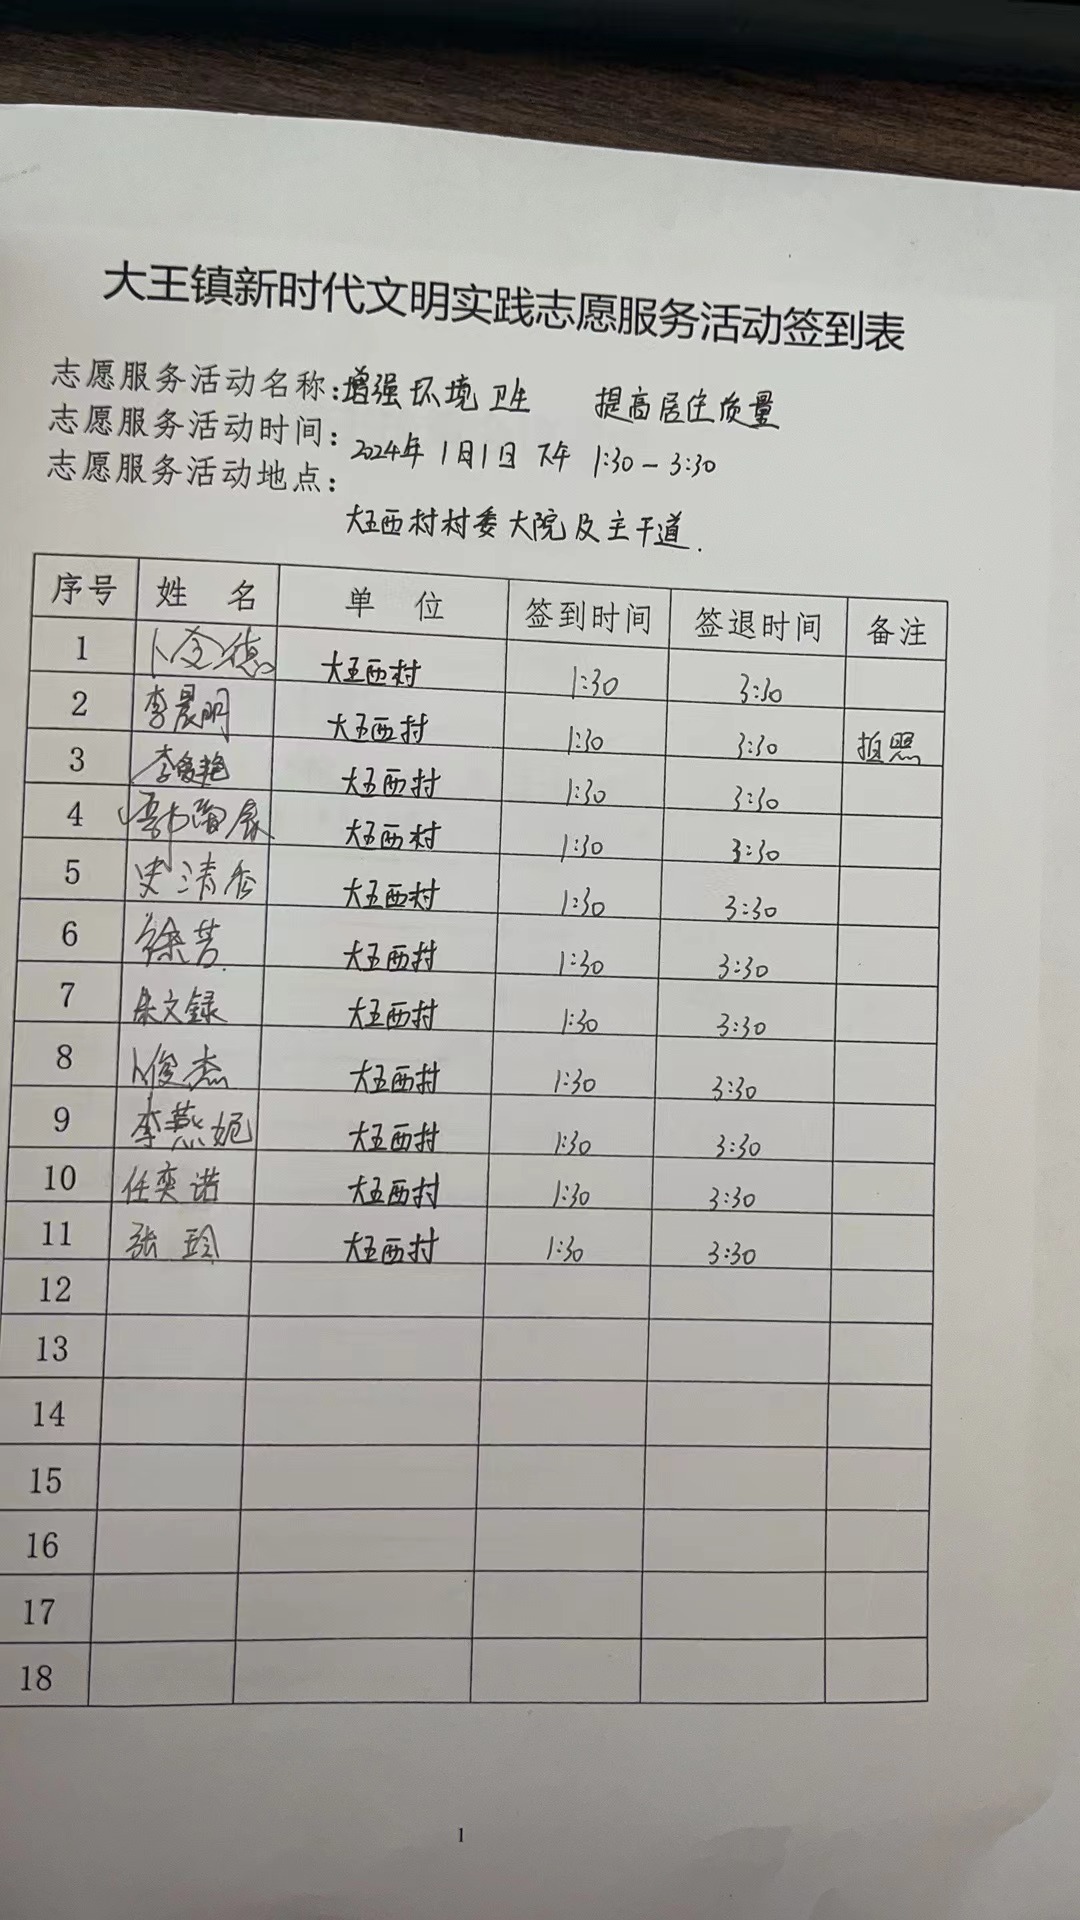 大王镇新时代文明实践志愿服务活动签到表
志愿服务活动名称:增强环境卫生 提高居住质量
志愿服务活动时间: 2024年1月1日 下午 1:30-3:30
志愿服务活动地点:
大王西村村委大院及主干道.
序号 姓 名 单 位 签到时间 签退时间 备注
1 卜全德 大王西村 1:30 3:30
2 李晨明 大王西村 1:30 3:30 拍照
3 李爱艳 大王西村 1:30 3:30
4 大王西村 1:30 3:30
5 史清香 大王西村 1:30 3:30
6 徐芳 大王西村 1:30 3:30
7 朱文録 大王西村 1:30 3:30
8 卜俊杰 大王西村 1:30 3:30
9 李燕妮 大王西村 1:30 3:30
10 任奕诺 大王西村 1:30 3:30
11 张玲 大王西村 1:30 3:30
12
13
14
15
16
17
18
1